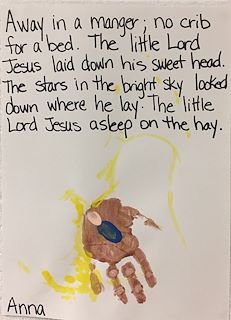 Away in a manger; no crib
for a bed. The little Lord
Jesus laid down his sweet head.
The stars in the bright sky looked
down where he lay. The little
Lord Jesus asleep on the hay.
Anna